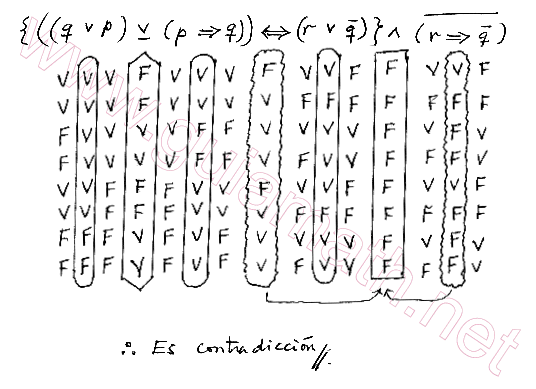 {((q ∨ p) ⊻ (p ⇒ q)) ⇔ (r ∨ q̄)} ∧ (\overline{r ⇒ q̄})
V V V F V V V F V V F F V V F
V V V F V V V V F F F F F F F
F V V V V F F V V V V F V F V
F V V V V F F V F V V F F F V
V V F F F V V F V V F F V V F
V V F F F V V V F F F F F F F
F F F V F V F V V V V F V F V
F F F V F V F V F V V F F F V
∴ Es contradicción//.
www.guiamath.net